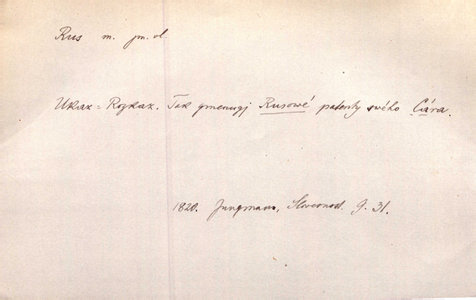 Rus m. jm. ob
Ukaz = Rozkaz. Tak gmenugj Rusowé patenty swého Cára.
1820. Jungmann, Slowesnost. 9. 31.